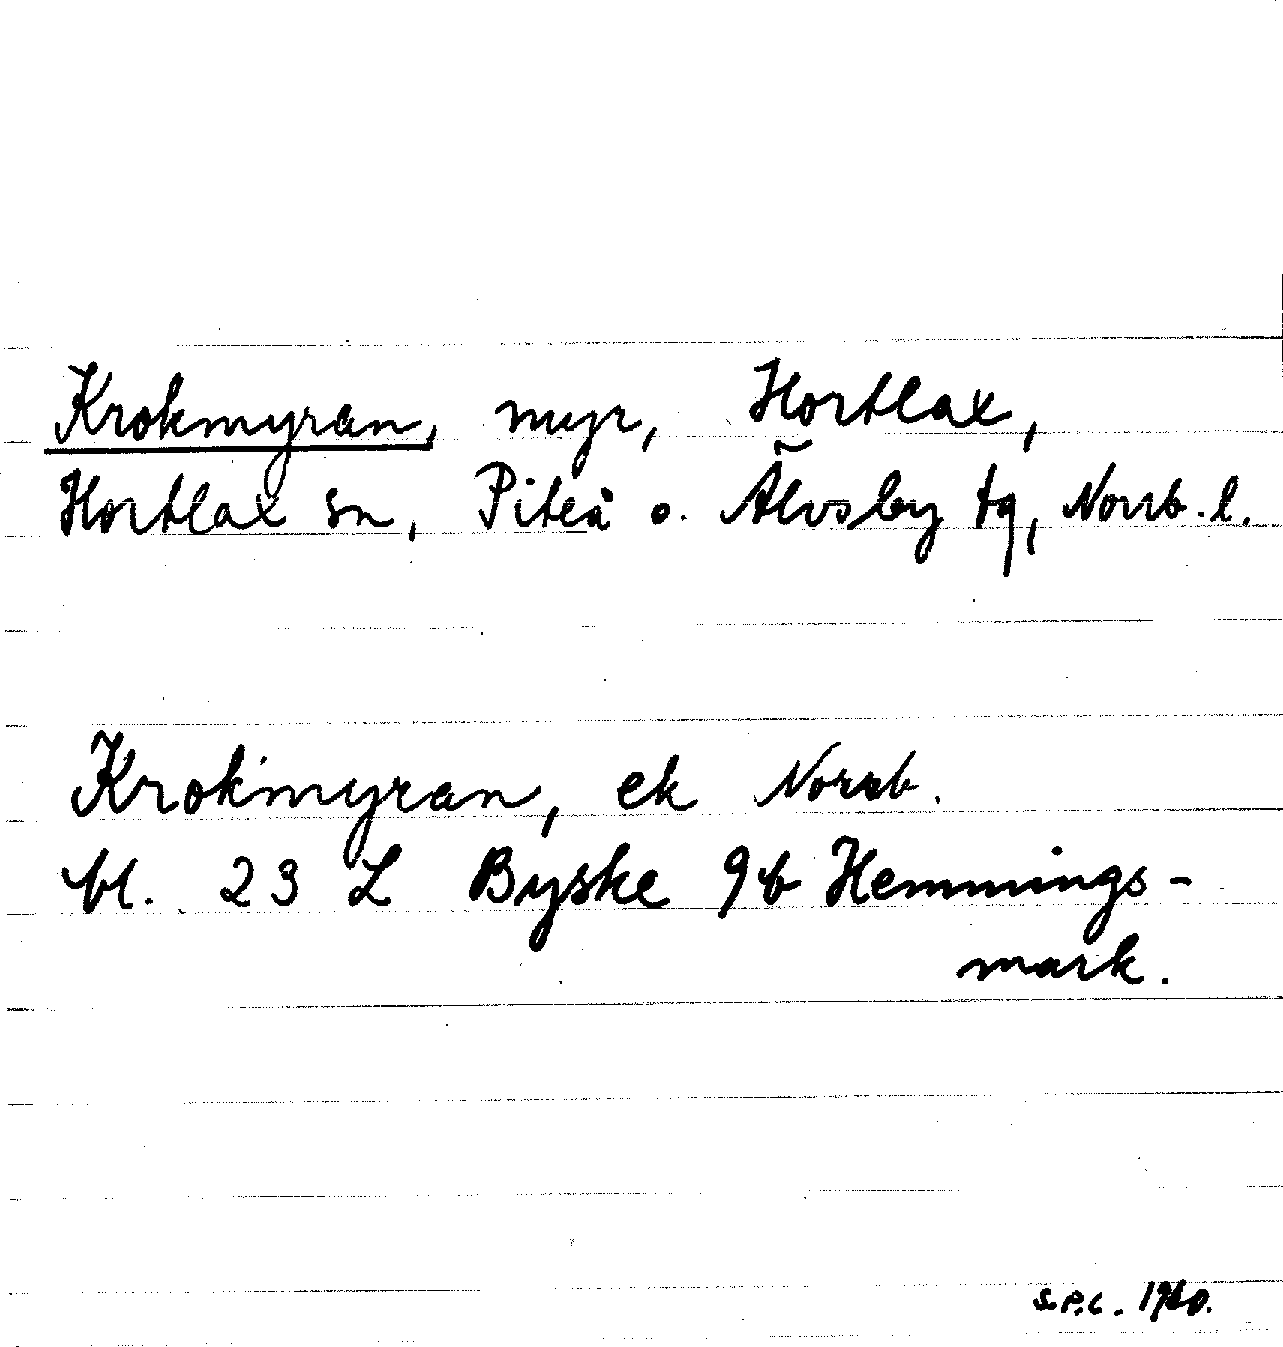 Krokmyran, myr, Hortlax,
Hortlax sn, Piteå o. Älvsby tg, Norrb. l.
Krokmyran, ek Norrb.
bl. 23 L Byske 9b Hemmings-
mark.
S.P.C. 1960.